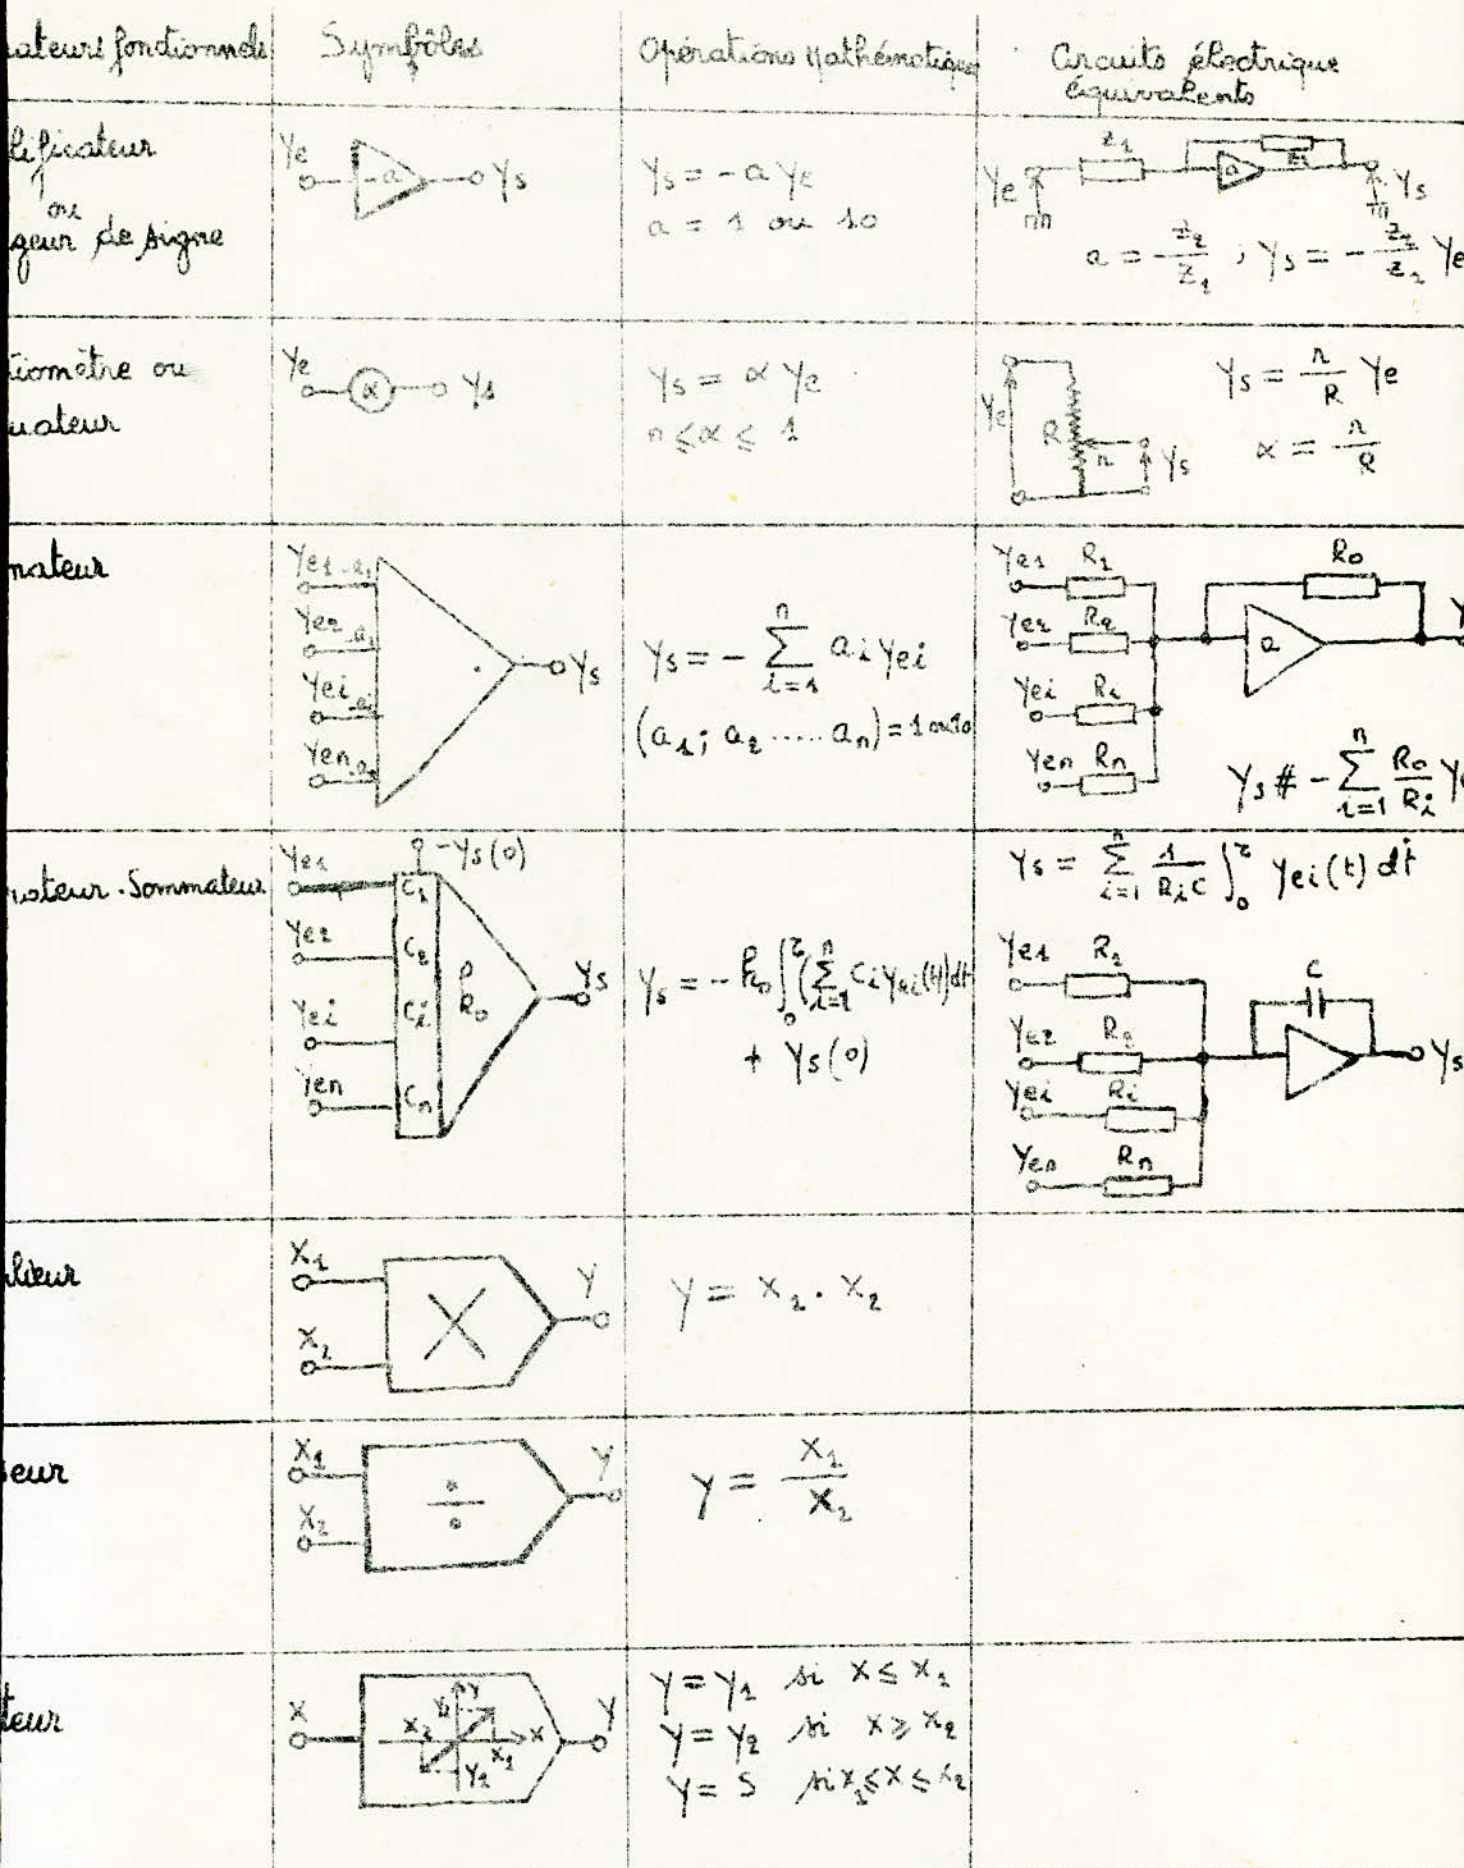 ateurs fonctionnels
Symbôles
Opérations Mathématiques
Circuits électrique
équivalents
lificateur
ou
geur de signe
Ye -a Ys
Ys = -a Ye
a = 1 ou 10
Ye Z1 a Z2 Ys
a = - Z2/Z1 ; Ys = - Z2/Z1 Ye
tiomètre ou
uateur
Ye α Ys
Ys = α Ye
0 ≤ α ≤ 1
Ye R r Ys
Ys = r/R Ye
α = r/R
mateur
Ye1 -a1
Ye2 -a2
Yei -ai
Yen -an
Ys
Ys = - ∑ i=1 n ai Yei
(a1; a2 ..... an) = 1 ou 10
Ye1 R1 R0
Ye2 R2 a
Yei Ri
Yen Rn
Ys # - ∑ i=1 n R0/Ri Ye
rateur-Sommateur
-Ys(0)
Ye1 C1
Ye2 C2
Yei Ci
Yen Cn
R0
Ys
Ys = - R0 ∫0 τ (∑ i=1 n Ci Yei(t)) dt
+ Ys(0)
Ys = ∑ i=1 n 1/RiC ∫0 τ Yei(t) dt
Ye1 R1 C
Ye2 R2 Ys
Yei Ri
Yen Rn
lieur
X1
X2
Y
Y = X1 . X2
eur
X1
X2
÷
Y
Y = X1/X2
teur
X
X2 X1 X
Y
Y2
Y
Y = Y1 si X ≤ X1
Y = Y2 si X ≥ X2
Y = S si X1 ≤ X ≤ X2